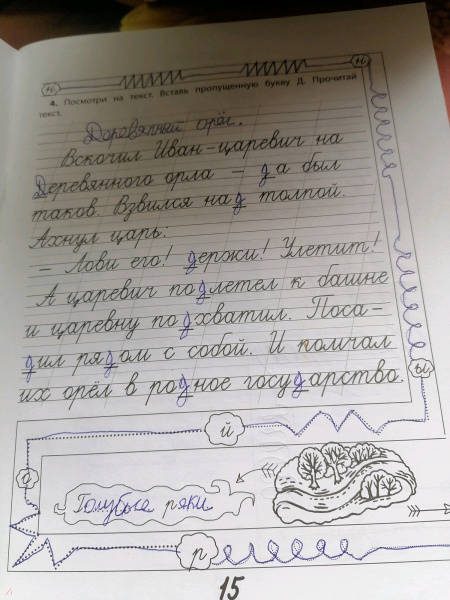 н
н
4. Посмотри на текст. Вставь пропущенную букву Д. Прочитай
текст.
Деревянный орёл.
Вскочил Иван-царевич на
Деревянного орла – да был
таков. Взвился над толпой.
Ахнул царь:
– Лови его! держи! Улетит!
А царевич подлетел к башне
и царевну подхватил. Поса-
дил рядом с собой. И помчал
их орёл в родное государство.
ы
й
Голубые ряки
р
15